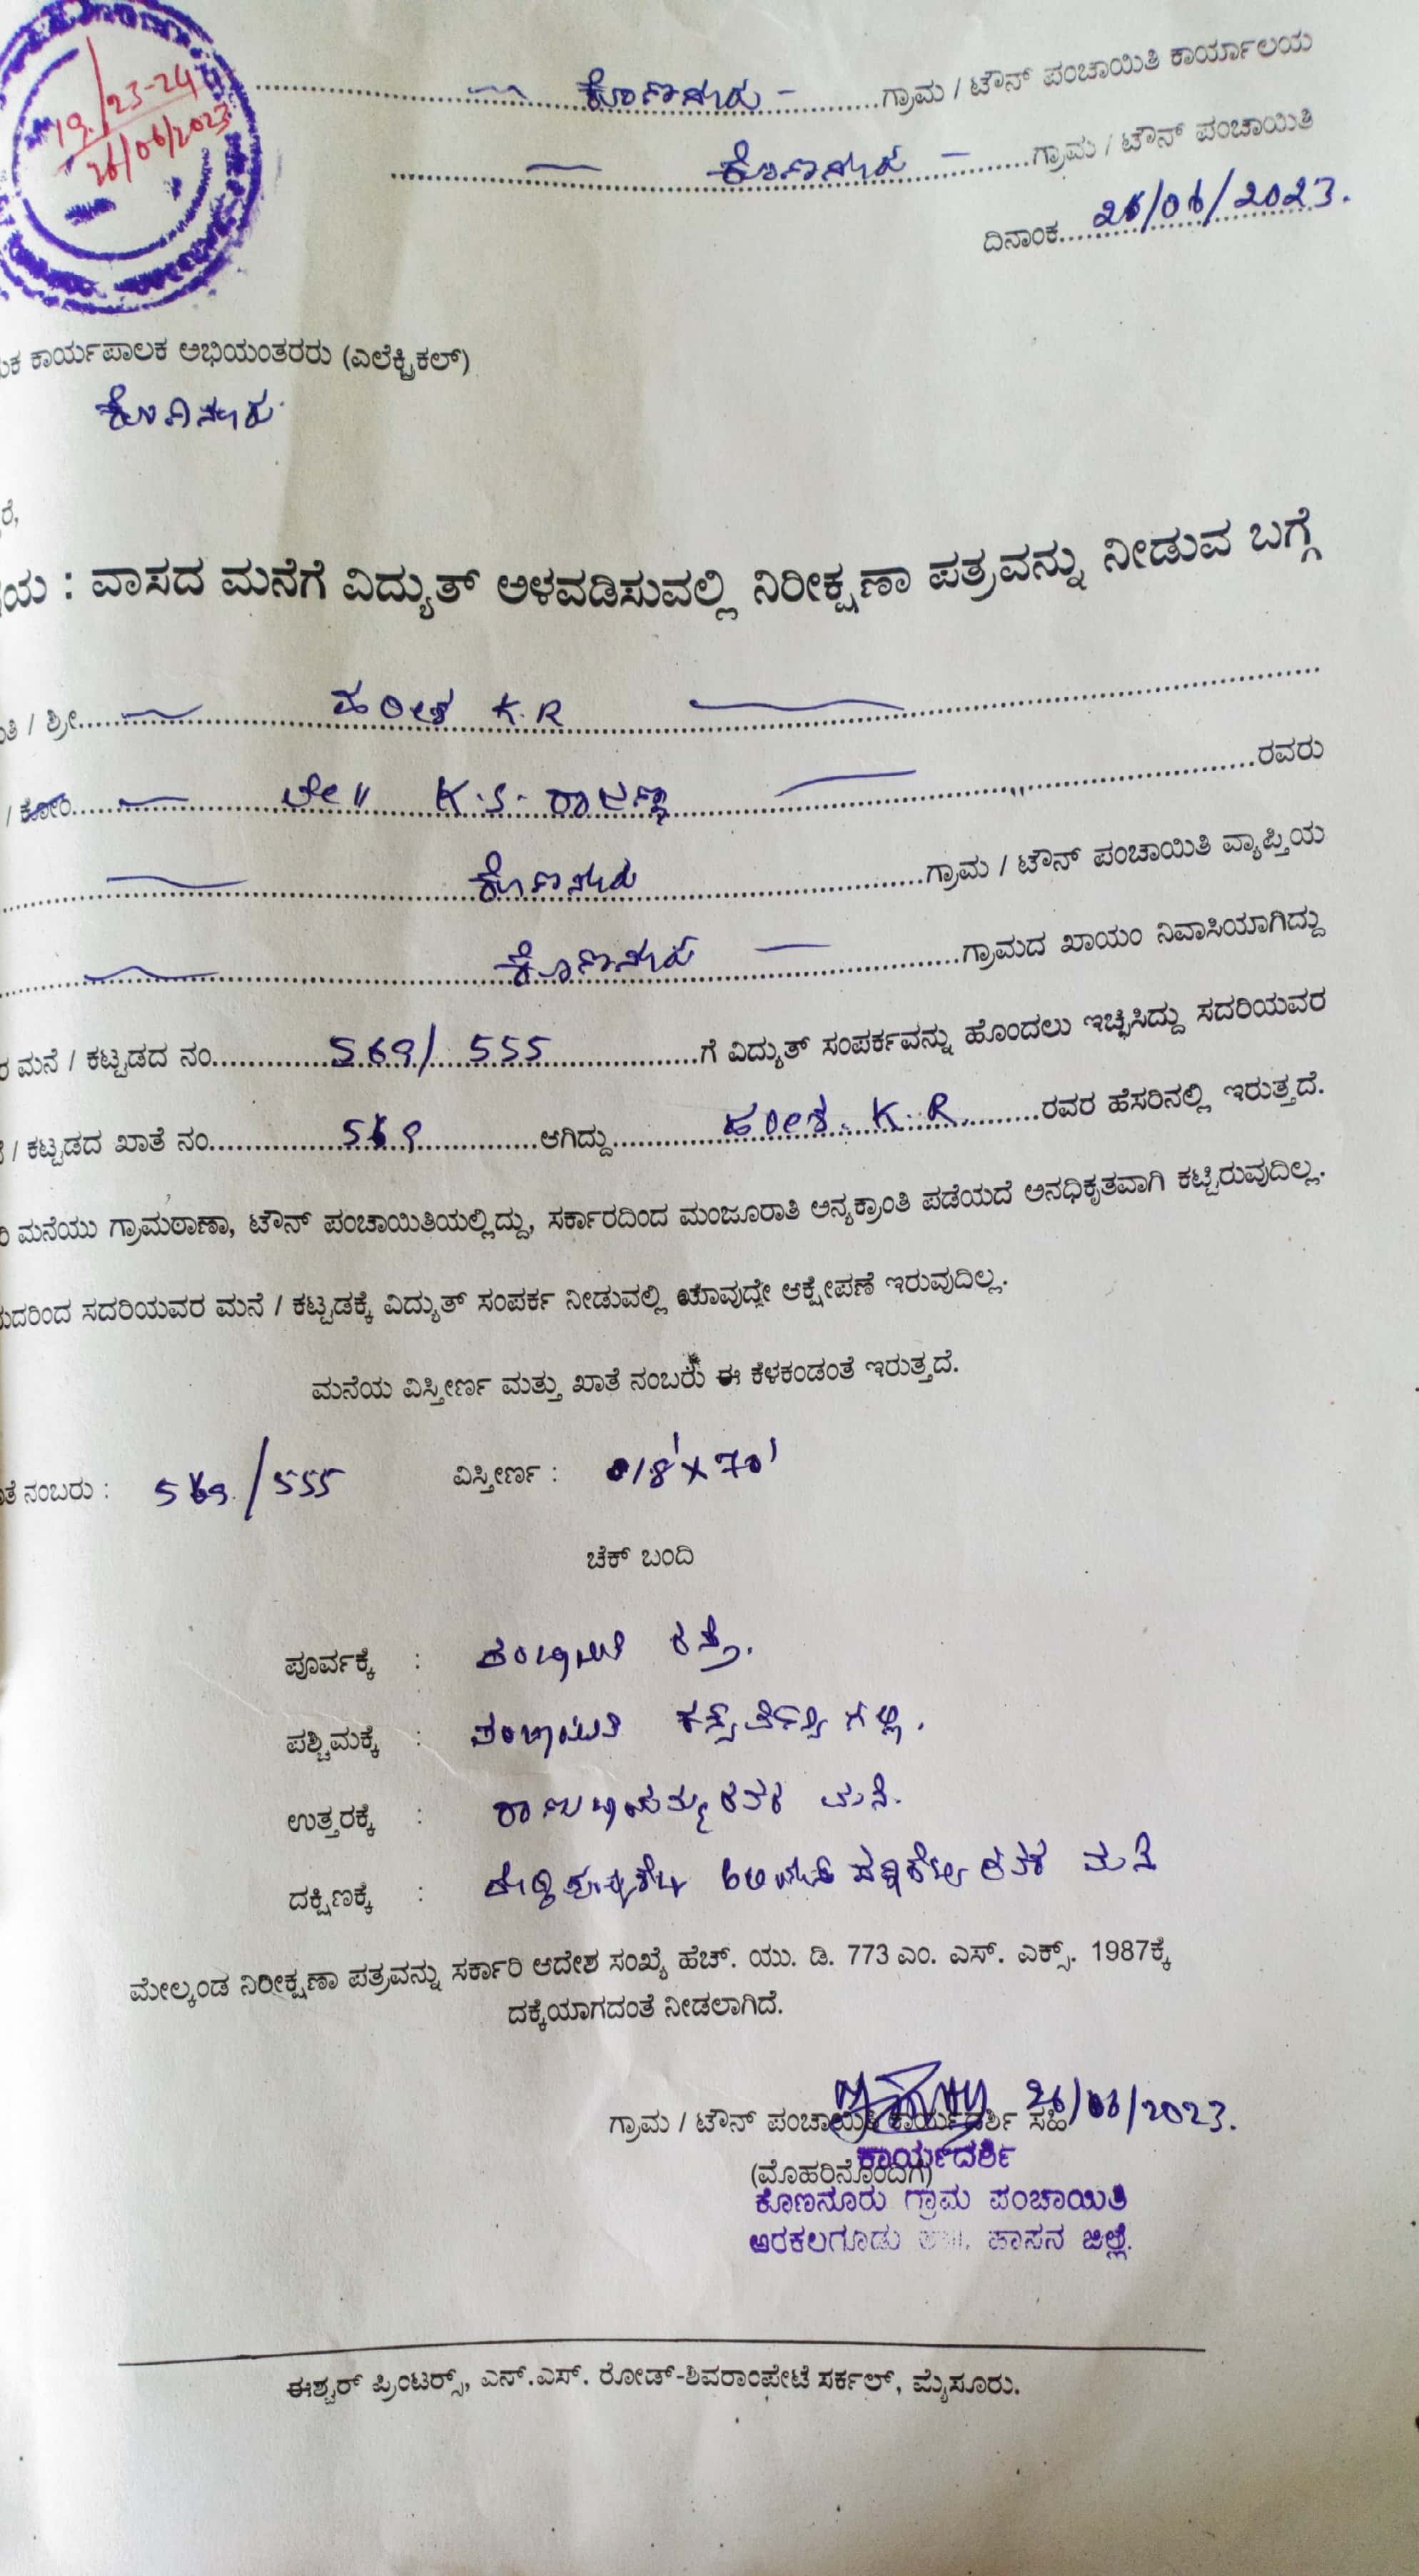 19/23-24
26/06/2023
ಕೊಣನೂರು ಗ್ರಾಮ / ಟೌನ್ ಪಂಚಾಯಿತಿ ಕಾರ್ಯಾಲಯ
ಕೊಣನೂರು ಗ್ರಾಮ / ಟೌನ್ ಪಂಚಾಯಿತಿ
ದಿನಾಂಕ 26/06/2023.
ಕಾರ್ಯಪಾಲಕ ಅಭಿಯಂತರರು (ಎಲೆಕ್ಟ್ರಿಕಲ್)
ಕೊಣನೂರು
: ವಾಸದ ಮನೆಗೆ ವಿದ್ಯುತ್ ಅಳವಡಿಸುವಲ್ಲಿ ನಿರೀಕ್ಷಣಾ ಪತ್ರವನ್ನು ನೀಡುವ ಬಗ್ಗೆ
/ ಶ್ರೀ ಹರೀಶ K.R
/ ಕೋಂ ಲೇ॥ K.S. ರಾಜಣ್ಣ ರವರು
ಕೊಣನೂರು ಗ್ರಾಮ / ಟೌನ್ ಪಂಚಾಯಿತಿ ವ್ಯಾಪ್ತಿಯ
ಕೊಣನೂರು ಗ್ರಾಮದ ಖಾಯಂ ನಿವಾಸಿಯಾಗಿದ್ದು
ಮನೆ / ಕಟ್ಟಡದ ನಂ 569/ 555 ಗೆ ವಿದ್ಯುತ್ ಸಂಪರ್ಕವನ್ನು ಹೊಂದಲು ಇಚ್ಛಿಸಿದ್ದು ಸದರಿಯವರ
/ ಕಟ್ಟಡದ ಖಾತೆ ನಂ 569 ಆಗಿದ್ದು ಹರೀಶ. K.R ರವರ ಹೆಸರಿನಲ್ಲಿ ಇರುತ್ತದೆ.
ಮನೆಯು ಗ್ರಾಮಠಾಣಾ, ಟೌನ್ ಪಂಚಾಯಿತಿಯಲ್ಲಿದ್ದು, ಸರ್ಕಾರದಿಂದ ಮಂಜೂರಾತಿ ಅನ್ಯಕ್ರಾಂತಿ ಪಡೆಯದೆ ಅನಧಿಕೃತವಾಗಿ ಕಟ್ಟಿರುವುದಿಲ್ಲ.
ಸದರಿಯವರ ಮನೆ / ಕಟ್ಟಡಕ್ಕೆ ವಿದ್ಯುತ್ ಸಂಪರ್ಕ ನೀಡುವಲ್ಲಿ ಯಾವುದೇ ಆಕ್ಷೇಪಣೆ ಇರುವುದಿಲ್ಲ.
ಮನೆಯ ವಿಸ್ತೀರ್ಣ ಮತ್ತು ಖಾತೆ ನಂಬರು ಈ ಕೆಳಕಂಡಂತೆ ಇರುತ್ತದೆ.
ನಂಬರು : 569/555 ವಿಸ್ತೀರ್ಣ : 18'x70'
ಚೆಕ್ ಬಂದಿ
ಪೂರ್ವಕ್ಕೆ : ಪಂಚಾಯಿತಿ ರಸ್ತೆ.
ಪಶ್ಚಿಮಕ್ಕೆ : ಪಂಚಾಯಿತಿ ಗಲ್ಲಿ.
ಉತ್ತರಕ್ಕೆ : ರವರ ಮನೆ.
ದಕ್ಷಿಣಕ್ಕೆ : ರವರ ಮನೆ
ಮೇಲ್ಕಂಡ ನಿರೀಕ್ಷಣಾ ಪತ್ರವನ್ನು ಸರ್ಕಾರಿ ಆದೇಶ ಸಂಖ್ಯೆ ಹೆಚ್. ಯು. ಡಿ. 773 ಎಂ. ಎಸ್. ಎಕ್ಸ್. 1987ಕ್ಕೆ
ದಕ್ಕೆಯಾಗದಂತೆ ನೀಡಲಾಗಿದೆ.
26/06/2023.
ಗ್ರಾಮ / ಟೌನ್ ಪಂಚಾಯಿತಿ ಕಾರ್ಯದರ್ಶಿ ಸಹಿ
ಕಾರ್ಯದರ್ಶಿ
(ಮೊಹರಿನೊಂದಿಗೆ)
ಕೊಣನೂರು ಗ್ರಾಮ ಪಂಚಾಯಿತಿ
ಅರಕಲಗೂಡು ತಾ॥. ಹಾಸನ ಜಿಲ್ಲೆ.
ಈಶ್ವರ್ ಪ್ರಿಂಟರ್ಸ್, ಎನ್.ಎಸ್. ರೋಡ್-ಶಿವರಾಂಪೇಟೆ ಸರ್ಕಲ್, ಮೈಸೂರು.